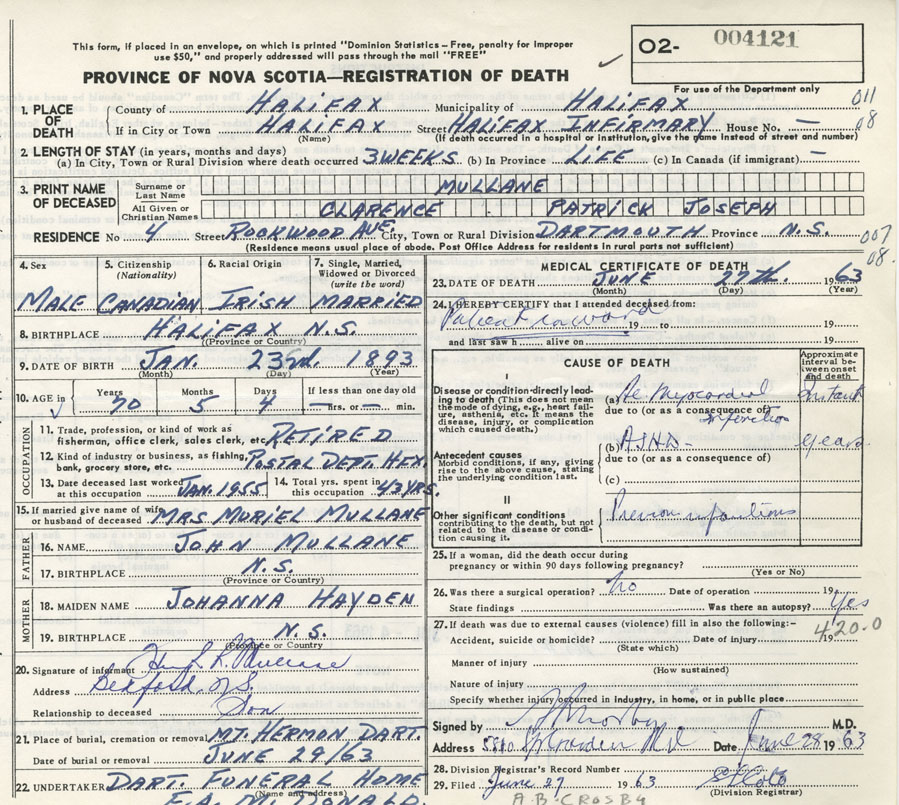 This form, if placed in an envelope, on which is printed "Dominion Statistics – Free, penalty for improper
use $50," and properly addressed will pass through the mail "FREE"
PROVINCE OF NOVA SCOTIA—REGISTRATION OF DEATH
O2- 004121
For use of the Department only
011
08
1. PLACE OF DEATH
County of HALIFAX Municipality of HALIFAX
If in City or Town HALIFAX (Name) Street HALIFAX INFIRMARY House No. —
(If death occurred in a hospital or institution, give the name instead of street and number)
2. LENGTH OF STAY (in years, months and days)
(a) In City, Town or Rural Division where death occurred 3 WEEKS (b) In Province LIFE (c) In Canada (if immigrant) —
3. PRINT NAME OF DECEASED
Surname or Last Name MULLANE
All Given or Christian Names CLARENCE PATRICK JOSEPH
RESIDENCE No 4 Street ROCKWOOD AVE. City, Town or Rural Division DARTMOUTH Province N.S.
(Residence means usual place of abode. Post Office Address for residents in rural parts not sufficient)
007
08.
4. Sex 5. Citizenship (Nationality) 6. Racial Origin 7. Single, Married, Widowed or Divorced (write the word)
MALE CANADIAN IRISH MARRIED
8. BIRTHPLACE HALIFAX N.S.
(Province or Country)
9. DATE OF BIRTH JAN. 23rd 1893
(Month) (Day) (Year)
10. AGE in Years Months Days If less than one day old
70 5 4 — hrs. or — min.
OCCUPATION
11. Trade, profession, or kind of work as
fisherman, office clerk, sales clerk, etc. RETIRED
12. Kind of industry or business, as fishing,
bank, grocery store, etc. POSTAL DEPT. HFX.
13. Date deceased last worked at this occupation JAN. 1955 14. Total yrs. spent in this occupation 43 YRS.
15. If married give name of wife
or husband of deceased MRS MURIEL MULLANE
FATHER
16. NAME JOHN MULLANE
17. BIRTHPLACE N.S.
(Province or Country)
MOTHER
18. MAIDEN NAME JOHANNA HAYDEN
19. BIRTHPLACE N.S.
(Province or Country)
20. Signature of informant Mullane
Address Bedford, N.S.
Relationship to deceased Son
21. Place of burial, cremation or removal MT. HERMON DART.
Date of burial or removal JUNE 29/63
22. UNDERTAKER DART. FUNERAL HOME
(Name and address)
MEDICAL CERTIFICATE OF DEATH
23. DATE OF DEATH JUNE 27th. 1963
(Month) (Day) (Year)
24. I HEREBY CERTIFY that I attended deceased from:
19 to 19
and last saw h alive on 19
CAUSE OF DEATH
Approximate interval between onset and death
I
Disease or condition directly leading
to death (This does not mean
the mode of dying, e.g., heart failure,
asthenia, etc. It means the
disease, injury, or complication
which caused death.)
(a) Myocardial Infarction Instant
due to (or as a consequence of)
Antecedent causes
Morbid conditions, if any, giving
rise to the above cause, stating
the underlying condition last.
(b) ASHD years
due to (or as a consequence of)
(c)
II
Other significant conditions
contributing to the death, but not
related to the disease or condition
causing it.
Previous infarctions
25. If a woman, did the death occur during
pregnancy or within 90 days following pregnancy?
(Yes or No)
26. Was there a surgical operation? No Date of operation 19
State findings Was there an autopsy? Yes
27. If death was due to external causes (violence) fill in also the following:–
Accident, suicide or homicide? Date of injury 19
(State which)
420.0
Manner of injury
(How sustained)
Nature of injury
Specify whether injury occurred in industry, in home, or in public place
Signed by Crosby M.D.
Address Date June 28 1963
28. Division Registrar's Record Number
29. Filed June 27 1963
(Division Registrar)
A.B. CROSBY